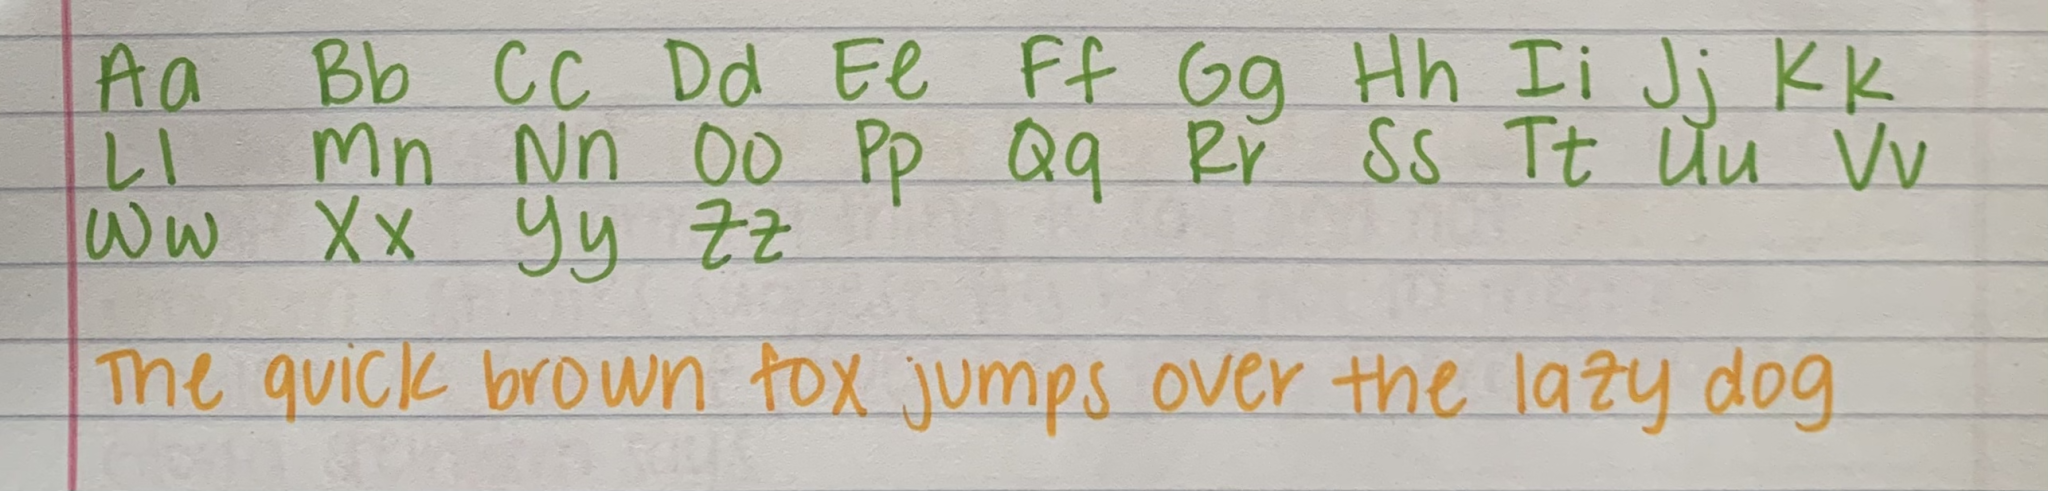 Aa Bb Cc Dd Ee Ff Gg Hh Ii Jj Kk
Ll Mn Nn Oo Pp Qq Rr Ss Tt Uu Vv
Ww Xx Yy Zz
The quick brown fox jumps over the lazy dog